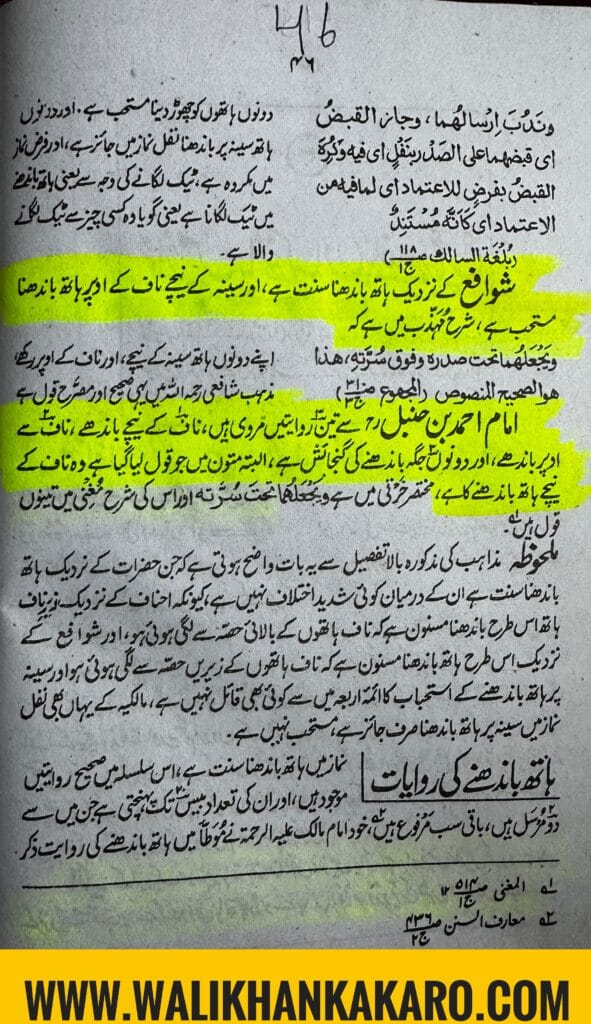 46
۴۶
وَنَدُبَ اِرسالهُما، وجاز القبضُ
ای قبضهما علی الصَّدْرِ بِنَفْلٍ ای فیه وکُرِهَ
القبضُ بفرضٍ للاعتماد ای لما فیه من
الاعتماد ای کَأنَّهٗ مُسْتَنِدٌ
(بُلْغَة السالك ص۱۱۸ ج۱)
دونوں ہاتھوں کو چھوڑ دینا مستحب ہے۔ اور دونوں
ہاتھ سینہ پر باندھنا نفل نماز میں جائز ہے، اور فرض نماز
میں مکروہ ہے، ٹیک لگانے کی وجہ سے یعنی ہاتھ باندھنے
میں ٹیک لگانا ہے یعنی گویا وہ کسی چیز سے ٹیک لگانے
والا ہے۔
شوافع کے نزدیک ہاتھ باندھنا سنت ہے، اور سینہ کے نیچے ناف کے اوپر ہاتھ باندھنا
مستحب ہے، شرح مُہَذَّب میں ہے کہ
ویَجْعَلُهُما تحت صدره وفوق سُرَّتِهٖ، هذا
هو الصحيح المنصوص (المجموع ص۳۱ ج۳)
اپنے دونوں ہاتھ سینہ کے نیچے، اور ناف کے اوپر رکھے،
مذہب شافعی رحمہ اللہ میں یہی صحیح اور مصرّح قول ہے
امام احمد بن حنبل رح سے تین۳ روایتیں مروی ہیں، ناف۱ کے نیچے باندھے، ناف۲ سے
اوپر باندھے، اور دونوں۳ جگہ باندھنے کی گنجائش ہے، البتہ متون میں جو قول لیا گیا ہے وہ ناف کے
نیچے ہاتھ باندھنے کا ہے، مختصر خَرَقی میں ہے ویَجْعَلُهُما تحت سُرَّته اور اس کی شرح مُغْنی میں تینوں
قول ہیں۱؎۔
ملحوظہ مذاہب کی مذکورہ بالا تفصیل سے یہ بات واضح ہوتی ہے کہ جن حضرات کے نزدیک ہاتھ
باندھنا سنت ہے ان کے درمیان کوئی شدید اختلاف نہیں ہے، کیونکہ احناف کے نزدیک زیرِ ناف
ہاتھ اس طرح باندھنا مسنون ہے کہ ناف ہاتھوں کے بالائی حصہ سے لگی ہوئی ہو، اور شوافع کے
نزدیک اس طرح ہاتھ باندھنا مسنون ہے کہ ناف ہاتھوں کے زیریں حصہ سے لگی ہوئی ہو اور سینہ
پر ہاتھ باندھنے کے استحباب کا ائمۂ اربعہ میں سے کوئی بھی قائل نہیں ہے، مالکیہ کے یہاں بھی نفل
نماز میں سینہ پر ہاتھ باندھنا صرف جائز ہے، مستحب نہیں ہے۔
ہاتھ باندھنے کی روایات
نماز میں ہاتھ باندھنا سنت ہے، اس سلسلہ میں صحیح روایتیں
موجود ہیں، اور ان کی تعداد بیس۲۰ تک پہنچتی ہے جن میں سے
دو۲ مُرسَل ہیں، باقی سب مرفوع ہیں۲؎، خود امام مالک علیہ الرحمۃ نے مُؤطّا میں ہاتھ باندھنے کی روایت ذکر
۱؎ المغنی ص۵۱۴ ج۱ ۱۲
۲؎ معارف السنن ص۴۳۶ ج۲
WWW.WALIKHANKAKARO.COM